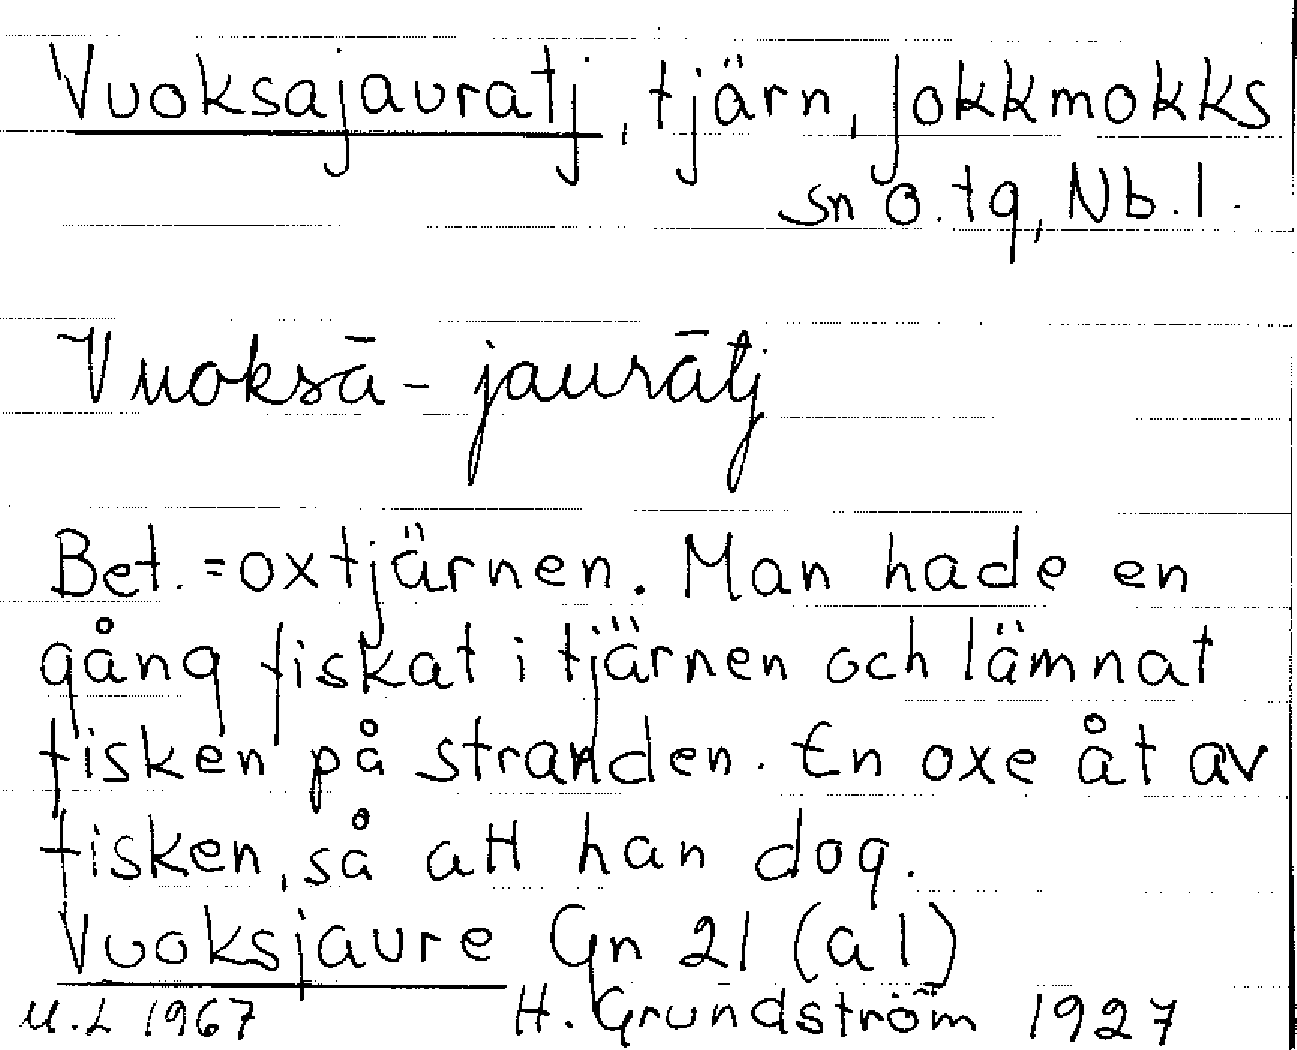 Vuoksajauratj, tjärn, Jokkmokks
sn o. tg, Nb. l.
Vuoksā-jaurātj
Bet. = oxtjärnen. Man hade en
gång fiskat i tjärnen och lämnat
fisken på stranden. En oxe åt av
fisken, så att han dog.
Vuoksjaure Gn 21 (a l)
M.L 1967 H. Grundström 1927